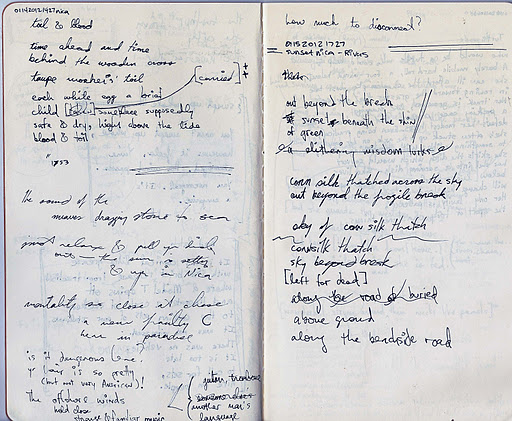 011420121427nica
toil & blood
time ahead and time
behind the wooden cross
taupe workers' toil
[carried]
each white egg a brief
child [taken] somewhere supposedly
safe & dry, hight above the tide
blood & toil
1753
the sound of the
waves dragging stones to sea
release & pull
out — the sun is setting
& up in Nica
mortality so close at
a new
here in paradise
is it dangerous
air is so pretty
(but not very American)!
the offshore winds
hold close
strange familiar music
guitar, trombone
another man's
language
how much to disconnect?
011520121727
sunset nica - Rivers
out beyond the break
sunset beneath the skin
of green
a slithering wisdom lurks
corn silk thatched across the sky
out beyond the fragile break
sky of corn silk thatch
cornsilk thatch
sky beyond break
[left for dead]
along the road of buried
above ground
along the beachside road